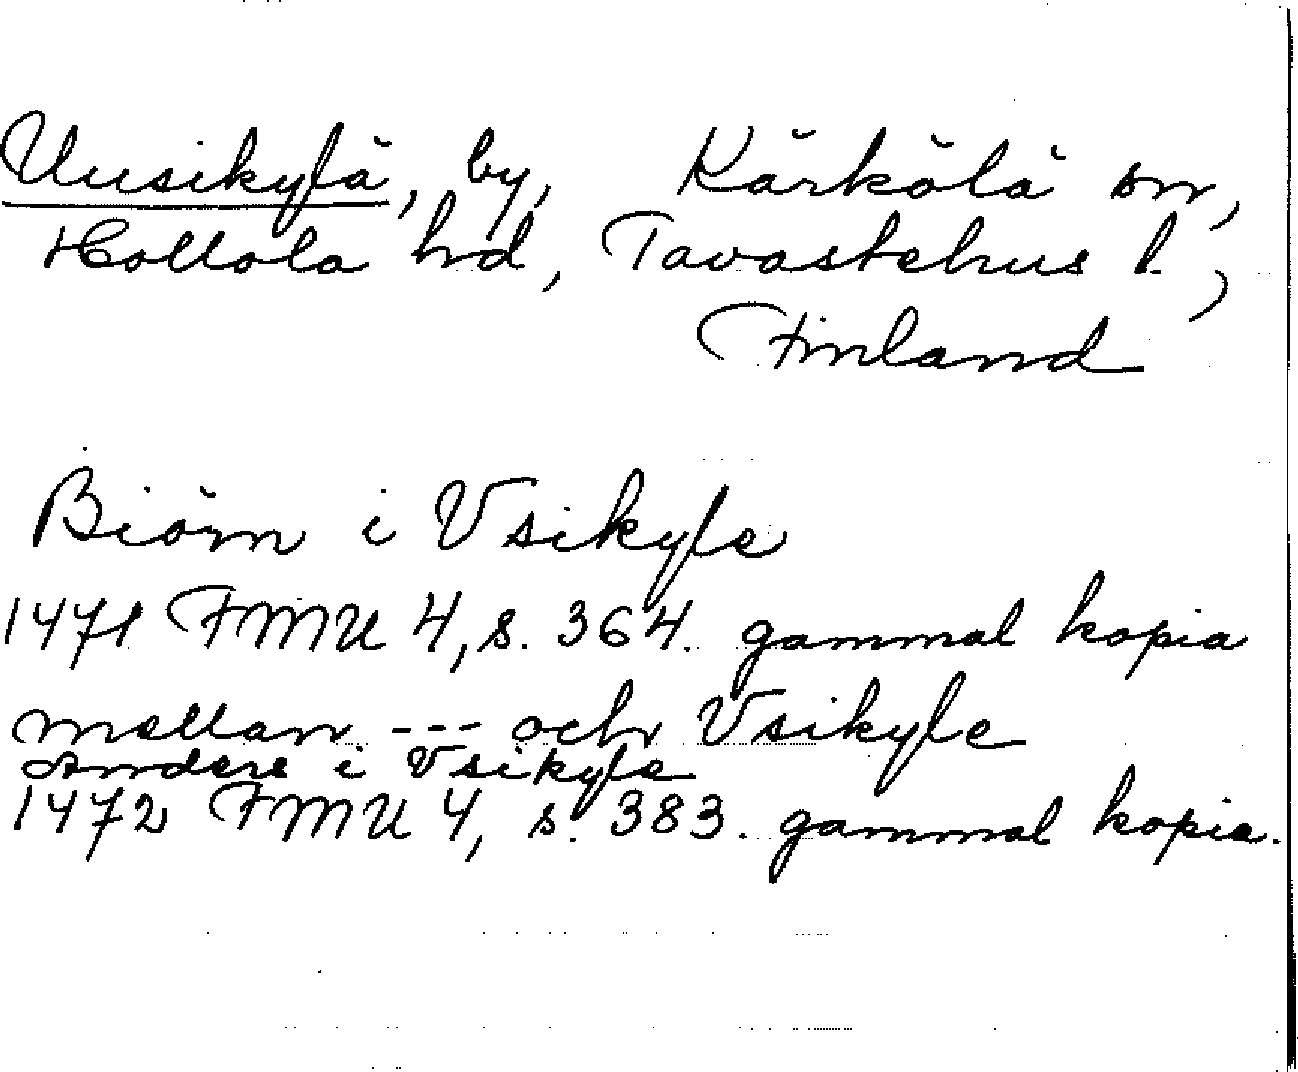 Uusikylä, by, Kärkölä sn,
Hollola hd, Tavastehus l.,
Finland
Biörn i Vsikyle
1471 FMU 4, s. 364. gammal kopia
mellan --- och Vsikyle
Anders i Vsikyle
1472 FMU 4, s. 383. gammal kopia.